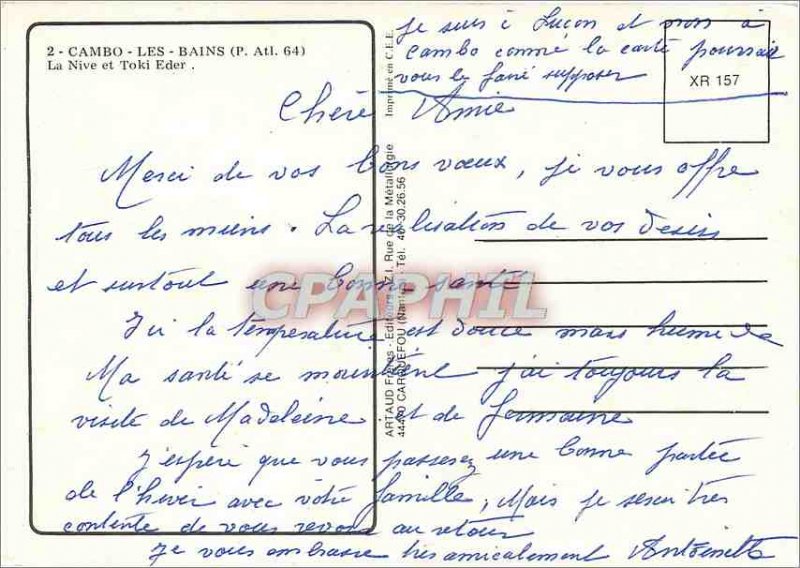 2 - CAMBO - LES - BAINS (P. Atl. 64)
La Nive et Toki Eder .
Imprimé en C.E.E.
ARTAUD Frères - Editeurs - Z.I. Rue de la Métallurgie
44470 CARQUEFOU (Nantes) - Tél. 40-30.26.56
XR 157
je suis à Luçon et non à
Cambo comme la carte pourrait
vous le faire supposer
Chère Amie
Merci de vos bons vœux, je vous offre
tous les miens. La réalisation de vos désirs
et surtout une bonne santé
Ici la température est douce mais humide
Ma santé se maintient j'ai toujours la
visite de Madeleine et de Germaine
J'espère que vous passerez une bonne partie
de l'hiver avec votre famille, Mais je serai très
contente de vous revoir au retour
Je vous embrasse très amicalement Antoinette
CPAPHIL